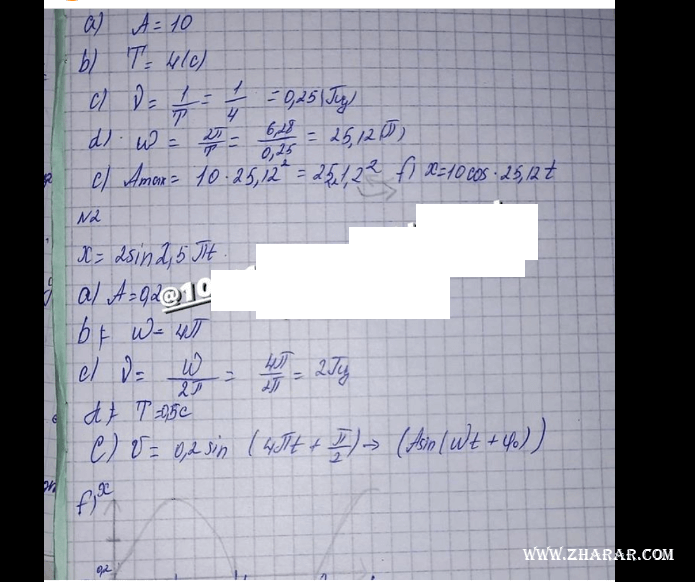 a) A = 10
b) T = 4(c)
c) ν = 1/T = 1/4 = 0,25 (Гц)
d) ω = 2π/T = 6,28/0,25 = 25,12 (π)
c) Amax = 10 · 25,12² = 251,2² f) x = 10 cos · 25,12 t
N2
x = 2 sin 2,5 πt
a) A = 0,2
@10
b) ω = 4π
c) ν = ω/2π = 4π/2π = 2 Гц
d) T = 0,5c
C) v = 0,2 sin (4πt + π/2) → (A sin (ωt + φ₀))
f) x
0,2
WWW.ZHARAR.COM